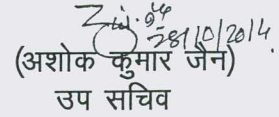 28/10/2014
(अशोक कुमार जैन)
उप सचिव